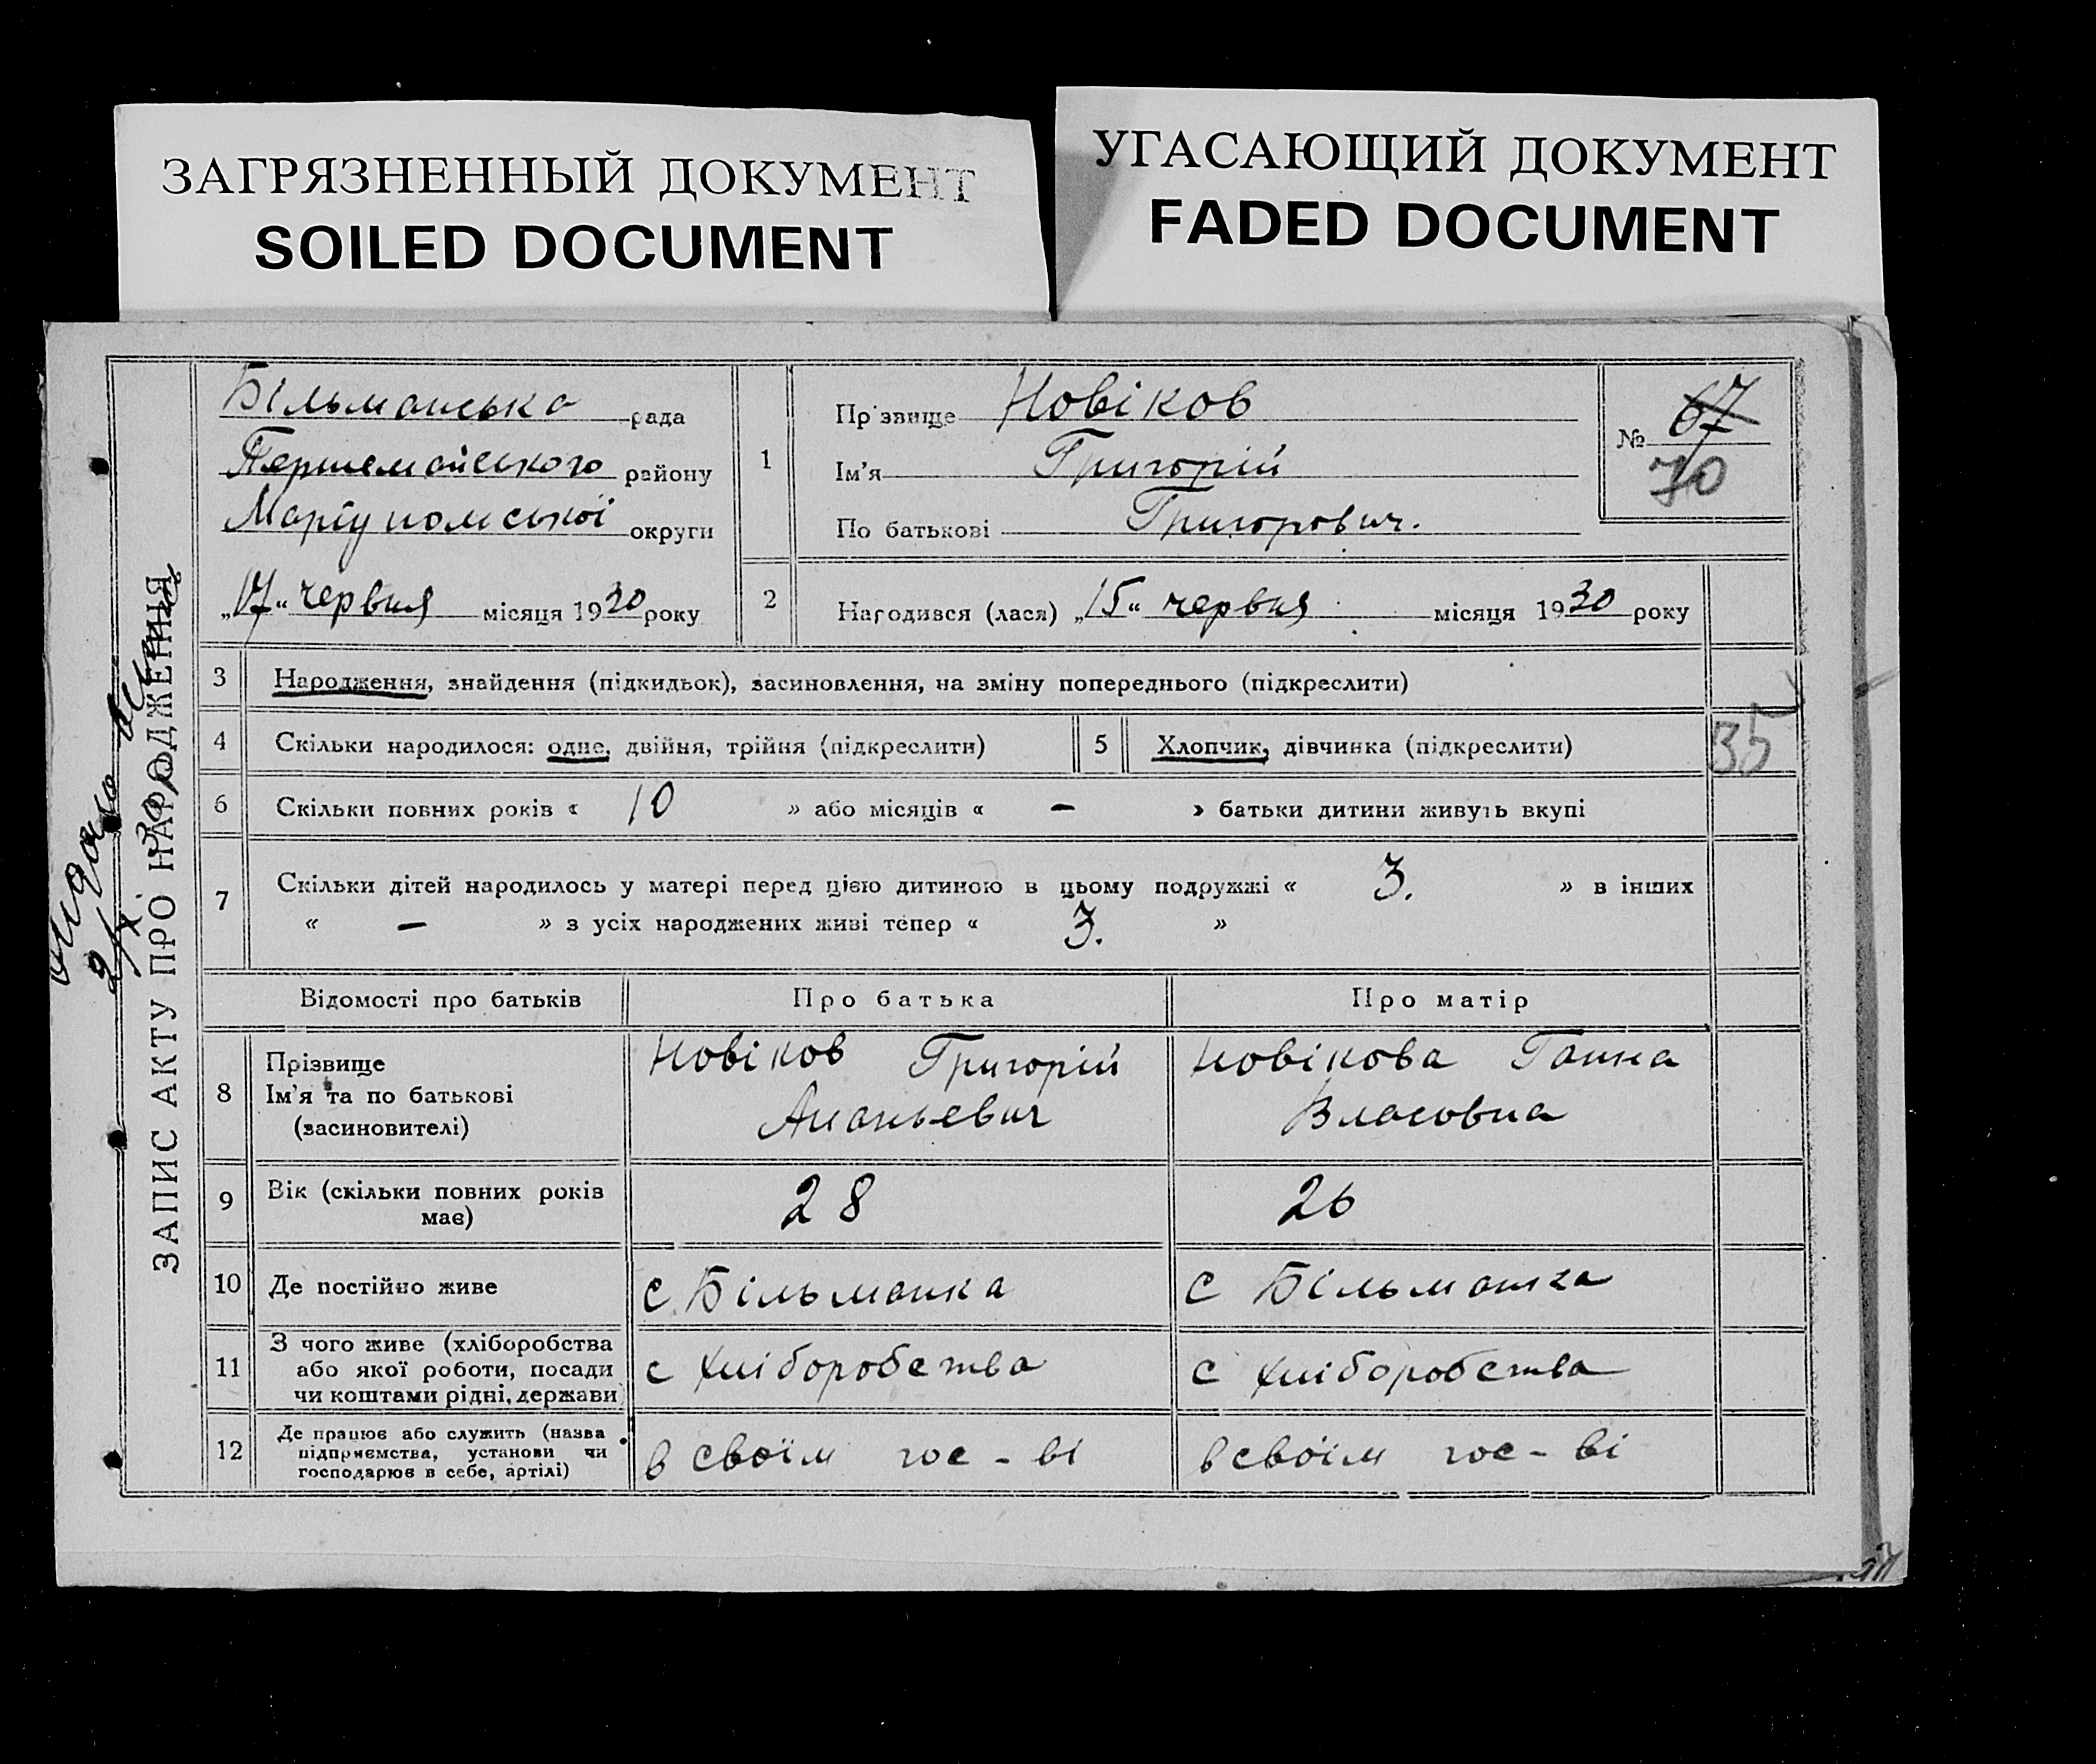 ЗАГРЯЗНЕННЫЙ ДОКУМЕНТ
SOILED DOCUMENT
УГАСАЮЩИЙ ДОКУМЕНТ
FADED DOCUMENT
ЗАПИС АКТУ ПРО НАРОДЖЕННЯ
Більманська рада
Першемайського району
Маріупольської округи
„17“ червня місяця 1930 року
1
Прізвище Новіков
Ім'я Григорій
По батькові Григорович.
№ 67
70
2 Народився (лася) „15“ червня місяця 1930 року
3 Народження, знайдення (підкидьок), засиновлення, на зміну попереднього (підкреслити)
4 Скільки народилося: одне, двійня, трійня (підкреслити) 5 Хлопчик, дівчинка (підкреслити)
35
6 Скільки повних років « 10 » або місяців « – » батьки дитини живуть вкупі
7 Скільки дітей народилось у матері перед цією дитиною в цьому подружжі « 3. » в інших
« – » з усіх народжених живі тепер « 3. »
Відомості про батьків Про батька Про матір
8 Прізвище
Ім'я та по батькові
(засиновителі)
Новіков Григорій
Ананьевич
Новікова Ганна
Власовна
9 Вік (скільки повних років
має)
28 26
10 Де постійно живе с. Більманка с Більманка
11 З чого живе (хліборобства
або якої роботи, посади
чи коштами рідні, держави
с хліборобства с хліборобства
12 Де працює або служить (назва
підприємства, установи чи
господарює в себе, артілі)
в своїм гос-ві в своїм гос-ві